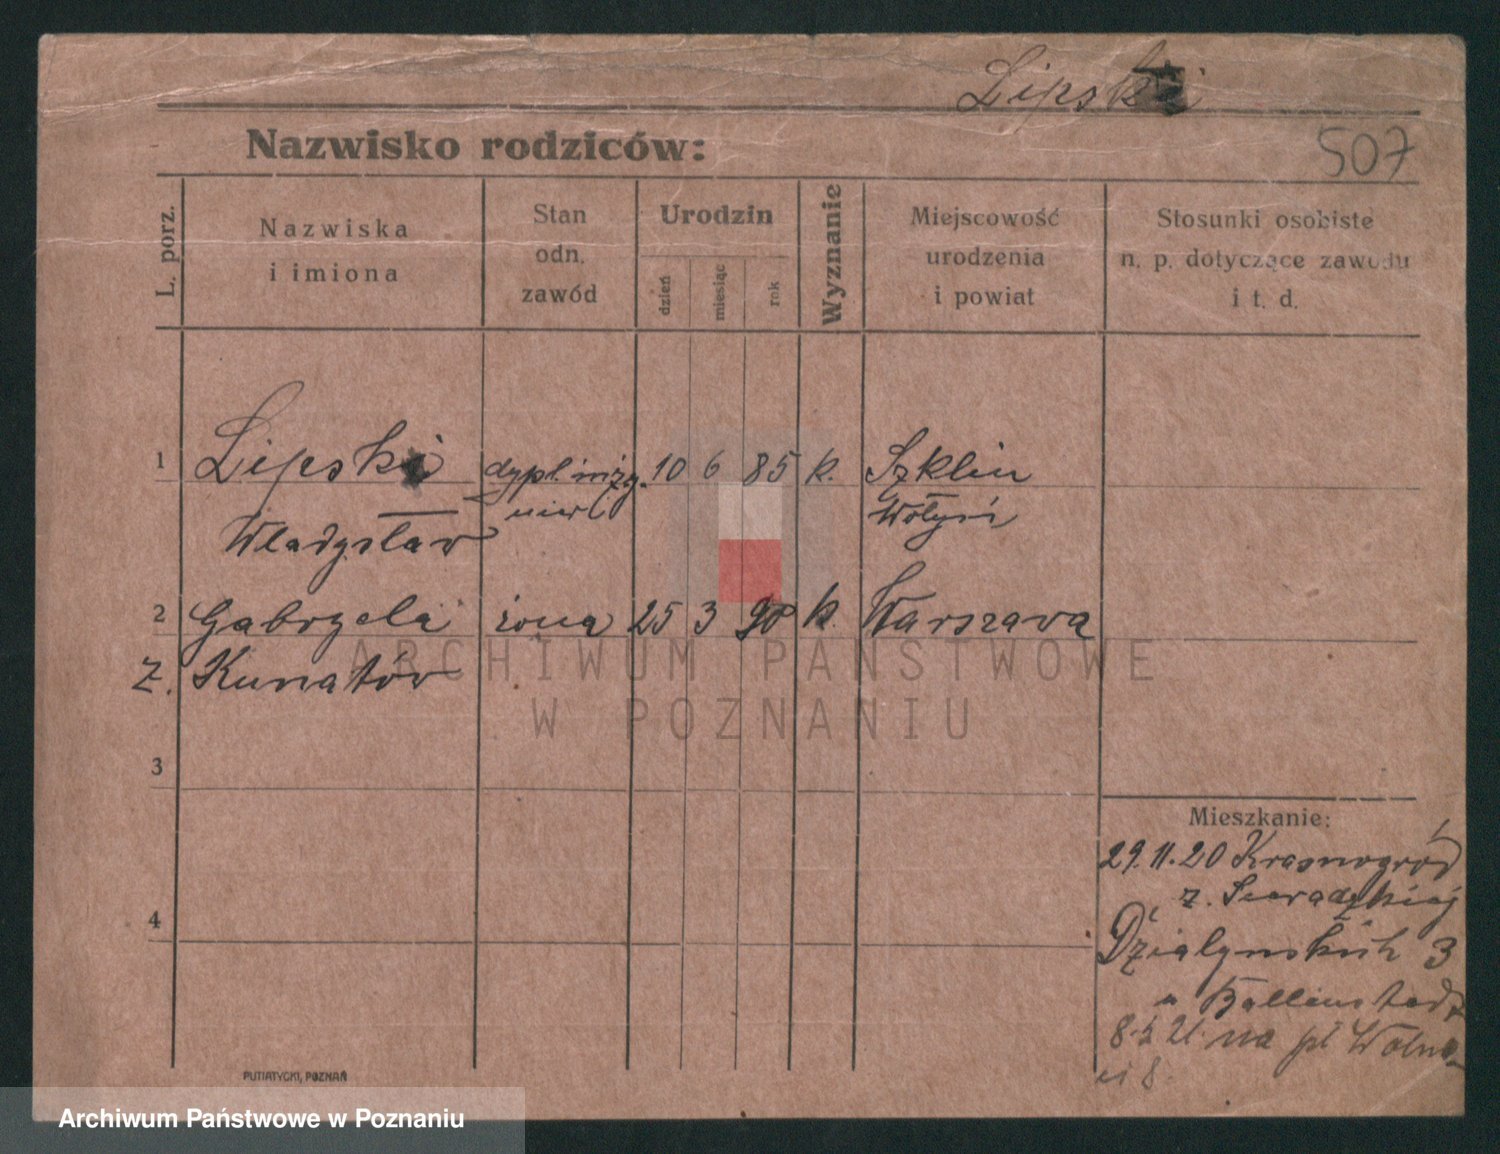 Lipski
Nazwisko rodziców:
507
L. porz.
Nazwiska
i imiona
Stan
odn.
zawód
Urodzin
dzień
miesiąc
rok
Wyznanie
Miejscowość
urodzenia
i powiat
Stosunki osobiste
n. p. dotyczące zawodu
i t. d.
1 Lipski dypl. inży- 10 6 85 k. Szklin
Władysław nier Wołyń
2 Gabryela żona 25 3 90 k. Warszava
z. Kunatów
3
4
Mieszkanie:
29.11.20 Krasnogród
z. Sieradzkiej
Działyńskich 3
u Ballenstedt
8.5 21 na pl Wolno-
ci 8.
PUTIATYCKI, POZNAŃ
ARCHIWUM PAŃSTWOWE
W POZNANIU
Archiwum Państwowe w Poznaniu